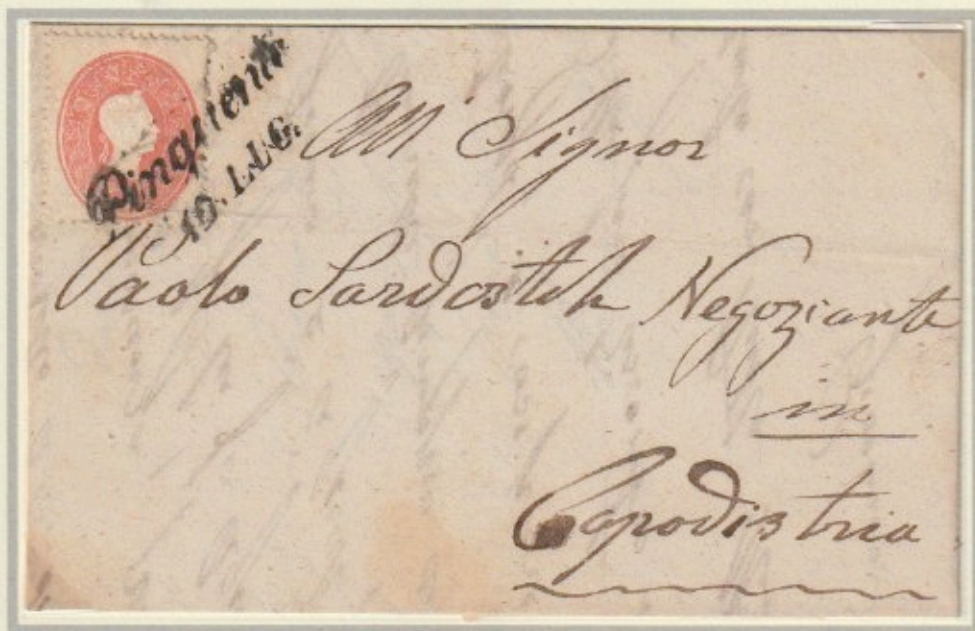 Pinguente
10. LUG.
All' Signor
Paolo Sardotsch Negoziante
in
Capodistria